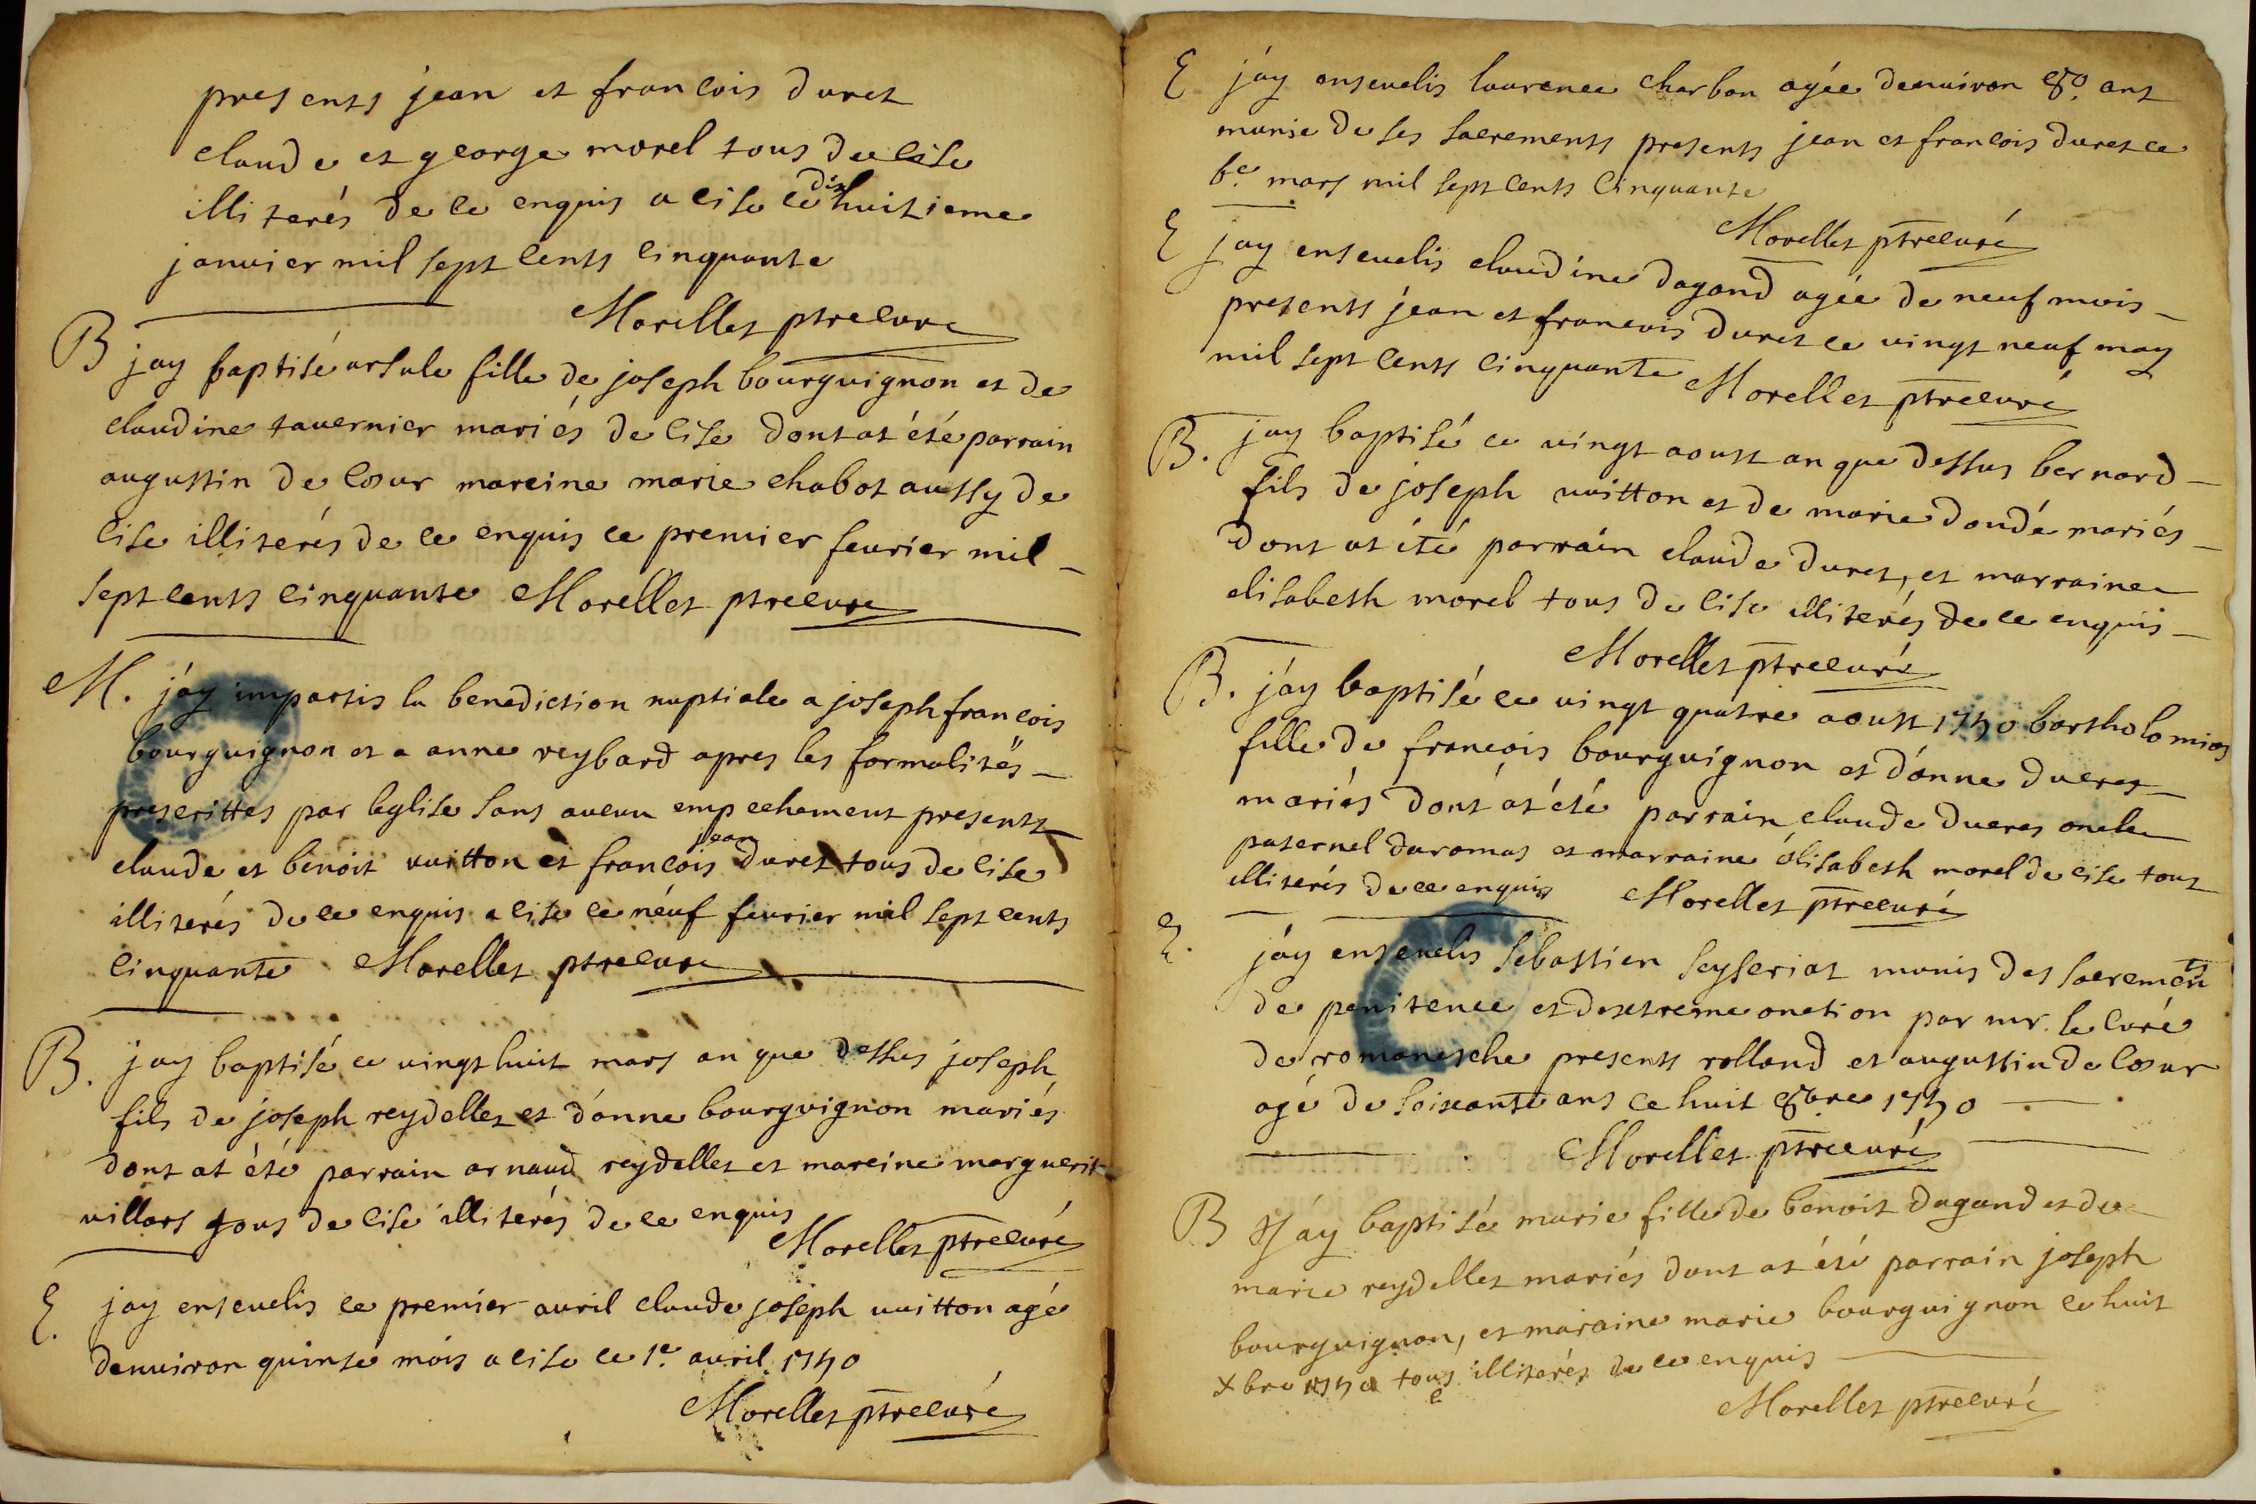 presents jean et francois duret
claude et george morel tous de cise
illiterés de ce enquis a cise ce dix huitieme
janvier mil sept cents cinquante
Morellet ptrecuré
B jay baptisé ursule fille de joseph bourguignon et de
claudine tavernier mariés de cise dont at été parrain
augustin de coeur mareine marie chabot aussy de
cise illiterés de ce enquis ce premier feurier mil
sept cents cinquante Morellet ptrecuré
M. jáy impartis la benediction nuptiale a joseph francois
bourguignon et a anne reybard apres les formalités
prescrittes par leglise sans aucun empechement presents
claude et benoit vuitton et francois jean duret tous de cise
illiterés de ce enquis a cise ce neuf feurier mil sept cents
cinquante Morellet ptrecuré
B. jay baptisé ce vingt huit mars an que dessus joseph
fils de joseph reydellet et d'anne bourguignon mariés
dont at été parrain arnaud reydellet et mareine marguerit
villars tous de cise illiterés de ce enquis
Morellet ptrecuré
E. jay enseuelis ce premier auril claude joseph vuitton agé
denuiron quinse mois a cise ce 1e. auril 1750
Morellet ptrecuré
E jáy enseuelis laurence charbon agée denuiron 80. ans
munie de ses sacrements presents jean et francois duret ce
6e. mars mil sept cents cinquante
Morellet ptrecuré
E jay enseuelis claudine dagand agée de neuf mois
presents jean et francois duret ce vingt neuf may
mil sept cents cinquante Morellet ptrecuré
B. jay baptisé ce vingt aoust an que dessus bernard
fils de joseph vuitton et de marie doudé mariés
dont at été parrain claude duret, et marraine
elisabeth morel tous de cise illiterés de ce enquis
Morellet ptrecuré
B. jáy baptisé ce vingt quatre aoust 1750 bartholomias
fille de francois bourguignon et d'anne ducret
mariés dont at été parrain claude ducret oncle
paternel daromas et marraine élisabeth morel de cise tous
illiterés de ce enquis Morellet ptrecuré
E. jáy enseuelis sebastien seyseriat munis des sacrements
de penitence et dextreme onction par mr. le curé
de romanesche presents rolland et augustin de coeur
agé de soixante ans ce huit 8bre 1750
Morellet ptrecuré
B Jáy baptisée marie fille de benoit dagand et de
marie reydellet mariés dont at été parrain joseph
bourguignon, et maraine marie bourguignon ce huit
xbre 1750 tous illiterés de ce enquis
Morellet ptrecuré